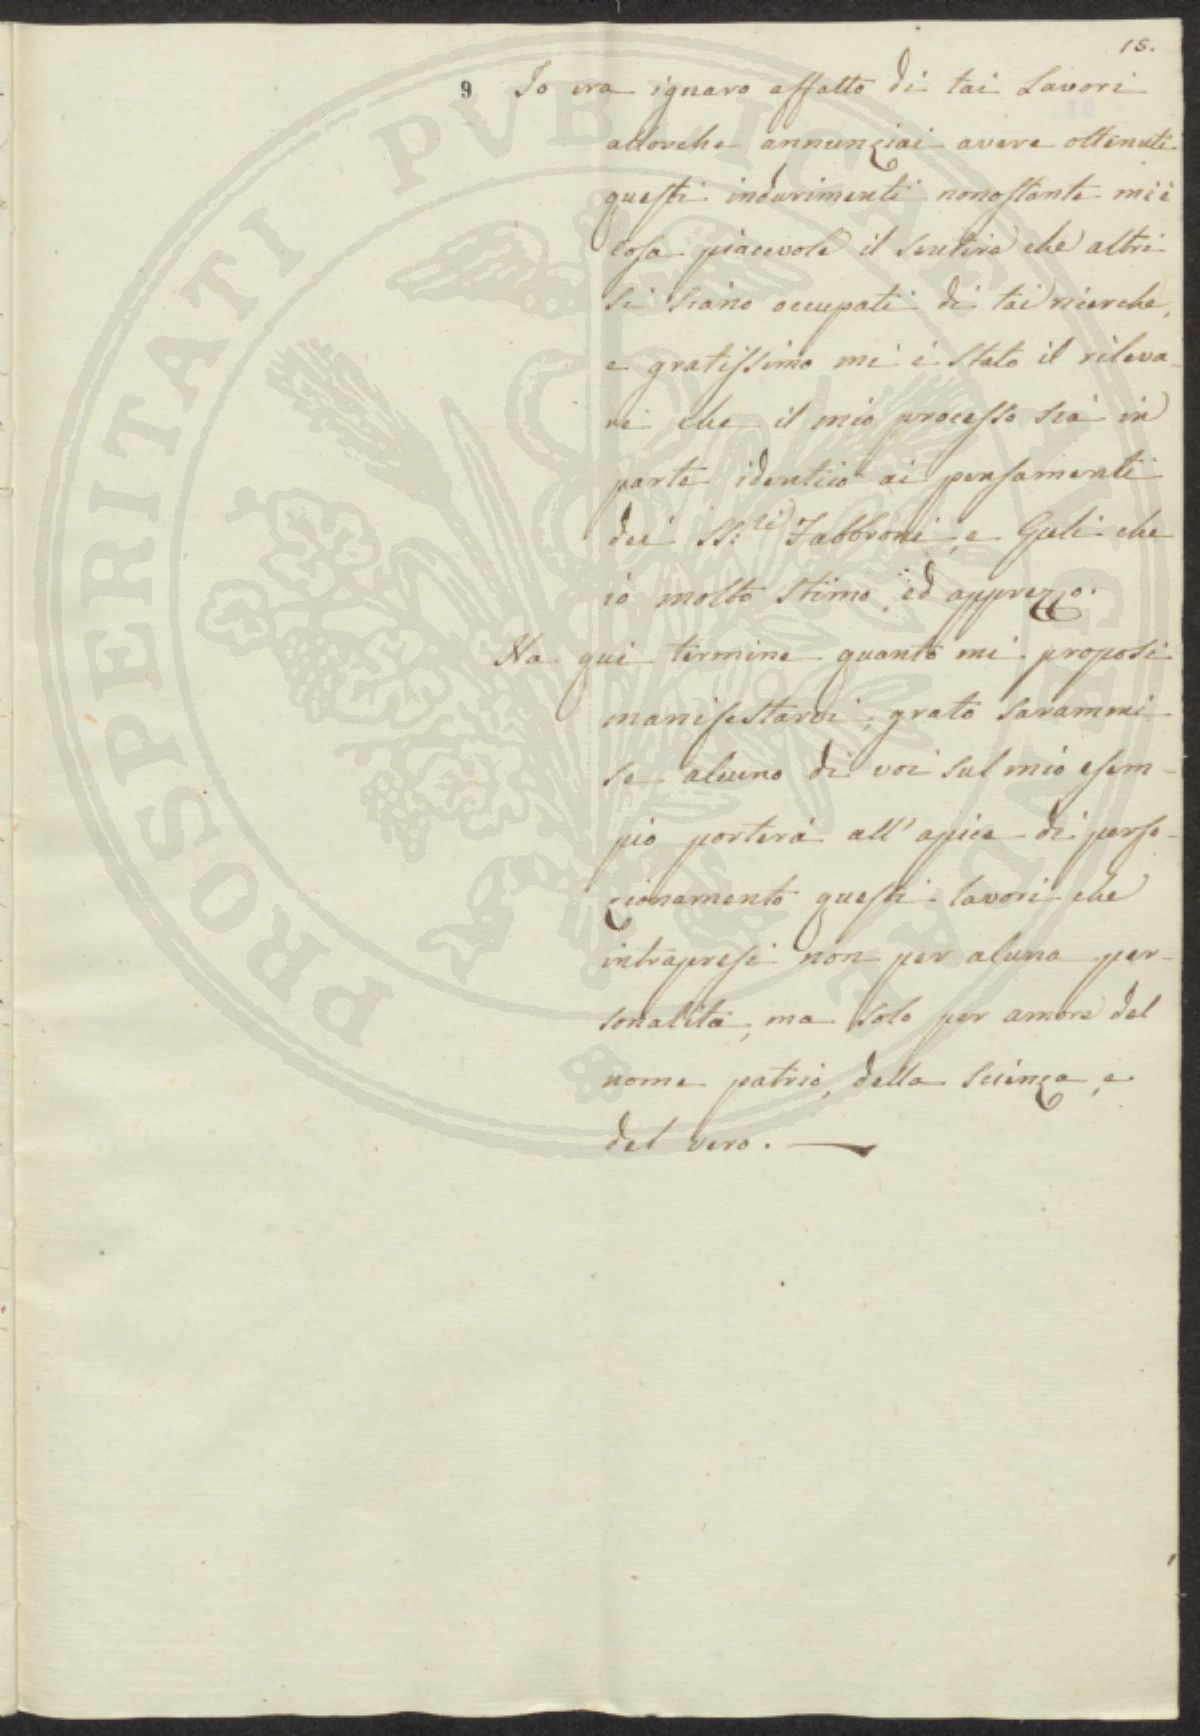 15.
9 Io era ignaro affatto di tai Lavori
allorche annunziai avere ottenuti
questi indurimenti nonostante mi è
cosa piacevole il sentire che altri
si siano occupati di tai ricerche,
e gratissimo mi è stato il rileva-
re che il mio processo sia in
parte identico ai pensamenti
dei SS:ri Fabbroni, e Gali che
io molto stimo, ed apprezzo.
Ha qui termine quanto mi proposi
manifestarvi; grato sarammi
se alcuno di voi sul mio esem-
pio porterà all' apice di perfe-
zionamento questi lavori che
intrapresi non per alcuna per-
sonalità, ma solo per amore del
nome patrio, della scienza, e
del vero.
PROSPERITATI PVBLICAE AVGENDAE